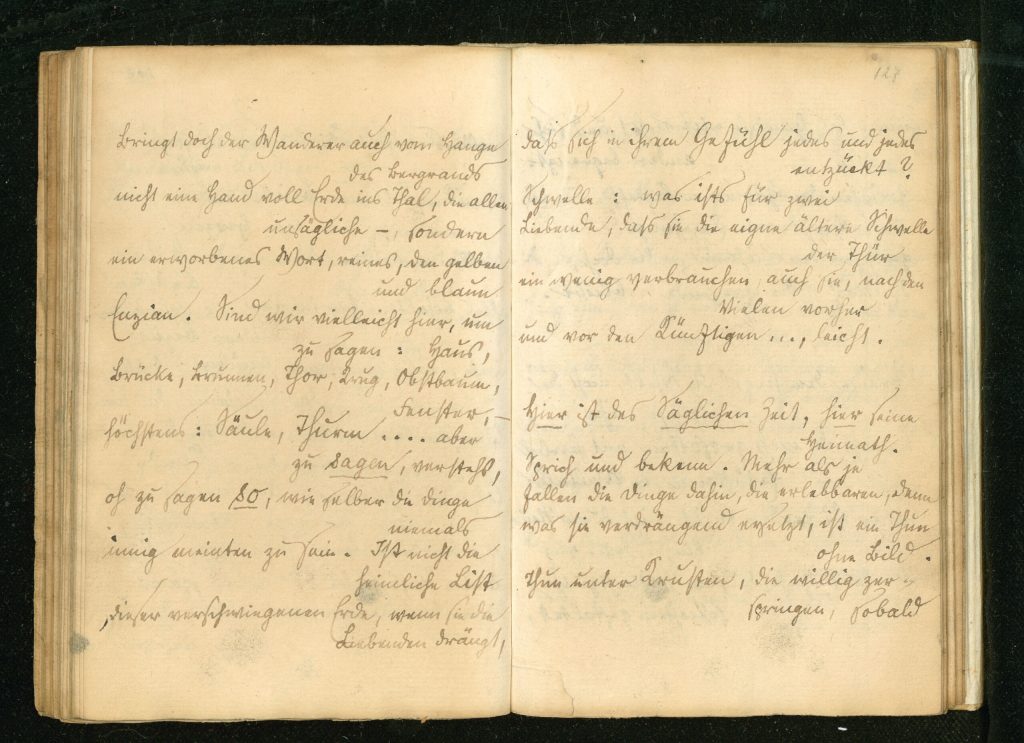 Bringt doch der Wanderer auch vom Hange
des Bergrands
nicht eine Hand voll Erde ins Thal, die allen
unsägliche –, sondern
ein erworbenes Wort, reines, den gelben
und blaun
Enzian. Sind wir vielleicht hier, um
zu sagen: Haus,
Brücke, Brunnen, Thor, Krug, Obstbaum,
Fenster, –
höchstens: Säule, Thurm .... aber
zu sagen, verstehs,
oh zu sagen so, wie selber die Dinge
niemals
innig meinten zu sein. Ist nicht die
heimliche List
dieser verschwiegenen Erde, wenn sie die
Liebenden drängt,
128
dass sich in ihrem Gefühl jedes und jedes
entzückt?
Schwelle: was ists für zwei
Liebende, dass sie die eigne ältere Schwelle
der Thür
ein wenig verbrauchen, auch sie, nach den
Vielen vorher
und vor den Künftigen ..., leicht.
Hier ist des Säglichen Zeit, hier seine
Heimath.
Sprich und bekenn. Mehr als je
fallen die Dinge dahin, die erlebbaren, denn
was sie verdrängend ersetzt, ist ein Thun
ohne Bild.
Thun unter Krusten, die willig zer-
springen, sobald